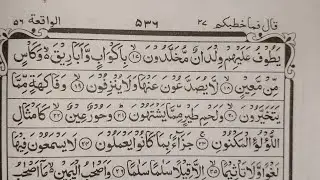 قال فما خطبكم ٢٧ ٥٣٦ الواقعة ٥٦
يَطُوفُ عَلَيْهِمْ وِلْدَانٌ مُّخَلَّدُونَ ١٧ بِأَكْوَابٍ وَّأَبَارِيقَ ۙ وَكَأْسٍ
مِّنْ مَّعِينٍ ١٨ لَّا يُصَدَّعُونَ عَنْهَا وَلَا يُنْزِفُونَ ١٩ وَفَاكِهَةٍ مِّمَّا
يَتَخَيَّرُونَ ٢٠ وَلَحْمِ طَيْرٍ مِّمَّا يَشْتَهُونَ ٢١ وَحُورٌ عِينٌ ٢٢ كَأَمْثَالِ
اللُّؤْلُؤِ الْمَكْنُونِ ٢٣ جَزَاءً بِمَا كَانُوا يَعْمَلُونَ ٢٤ لَا يَسْمَعُونَ فِيهَا
لَغْوًا وَّلَا تَأْثِيمًا ٢٥ إِلَّا قِيلًا سَلَامًا سَلَامًا ٢٦ وَأَصْحَابُ الْيَمِينِ ۙ مَا أَصْحَابُ